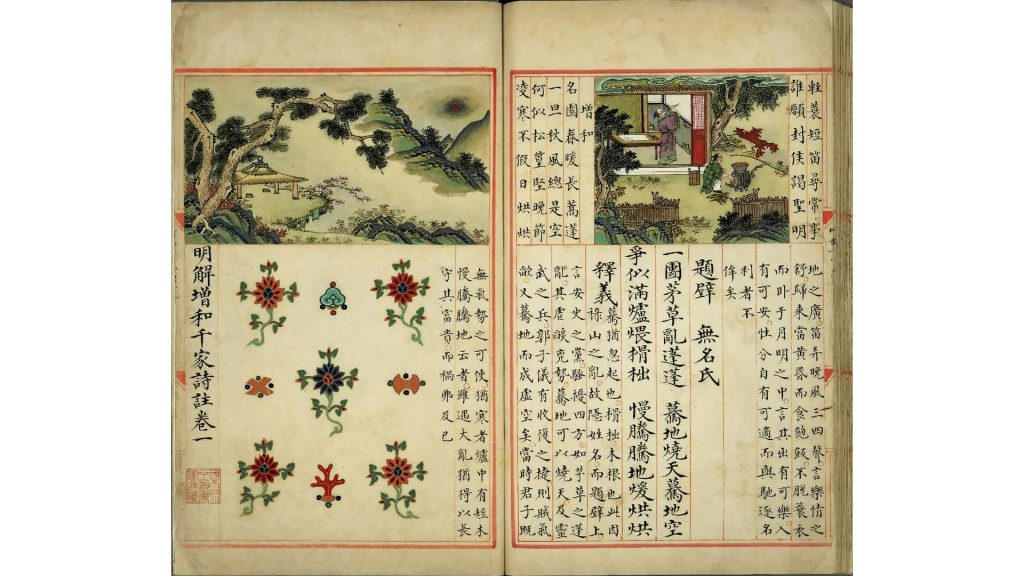 輕蓑短笛尋常事
誰願封侯謁聖明
增和
名園春暖長蒿蓬
一旦秋風總是空
何似松篁堅晚節
凌寒不假日烘烘
地之廣笛弄晚風三四聲言樂情之
舒歸來當黃昏而食飽飯不脫蓑衣
而卧于月明之中言其出有可樂入
有可安性分自有可適而與馳逐名
利者不
侔矣
題壁 無名氏
一團茅草亂蓬蓬 驀地燒天驀地空
爭似滿爐煨榾柮 慢騰騰地煖烘烘
釋義 驀猶忽起也榾柮木根也此因
祿山之亂故隱姓名而題壁上
言安史之黨騷擾四方如茅草之蓬
亂其虐燄克勢驀地可以燒天及靈
武之兵郭子儀有收復之捷則賊氣
歇又驀地而成虛空矣當時君子既
無氣勢之可使猶寒者爐中有短木
慢騰騰地云者雖遇大亂猶得以長
守其富貴而禍弗及已
明解增和千家詩註卷一